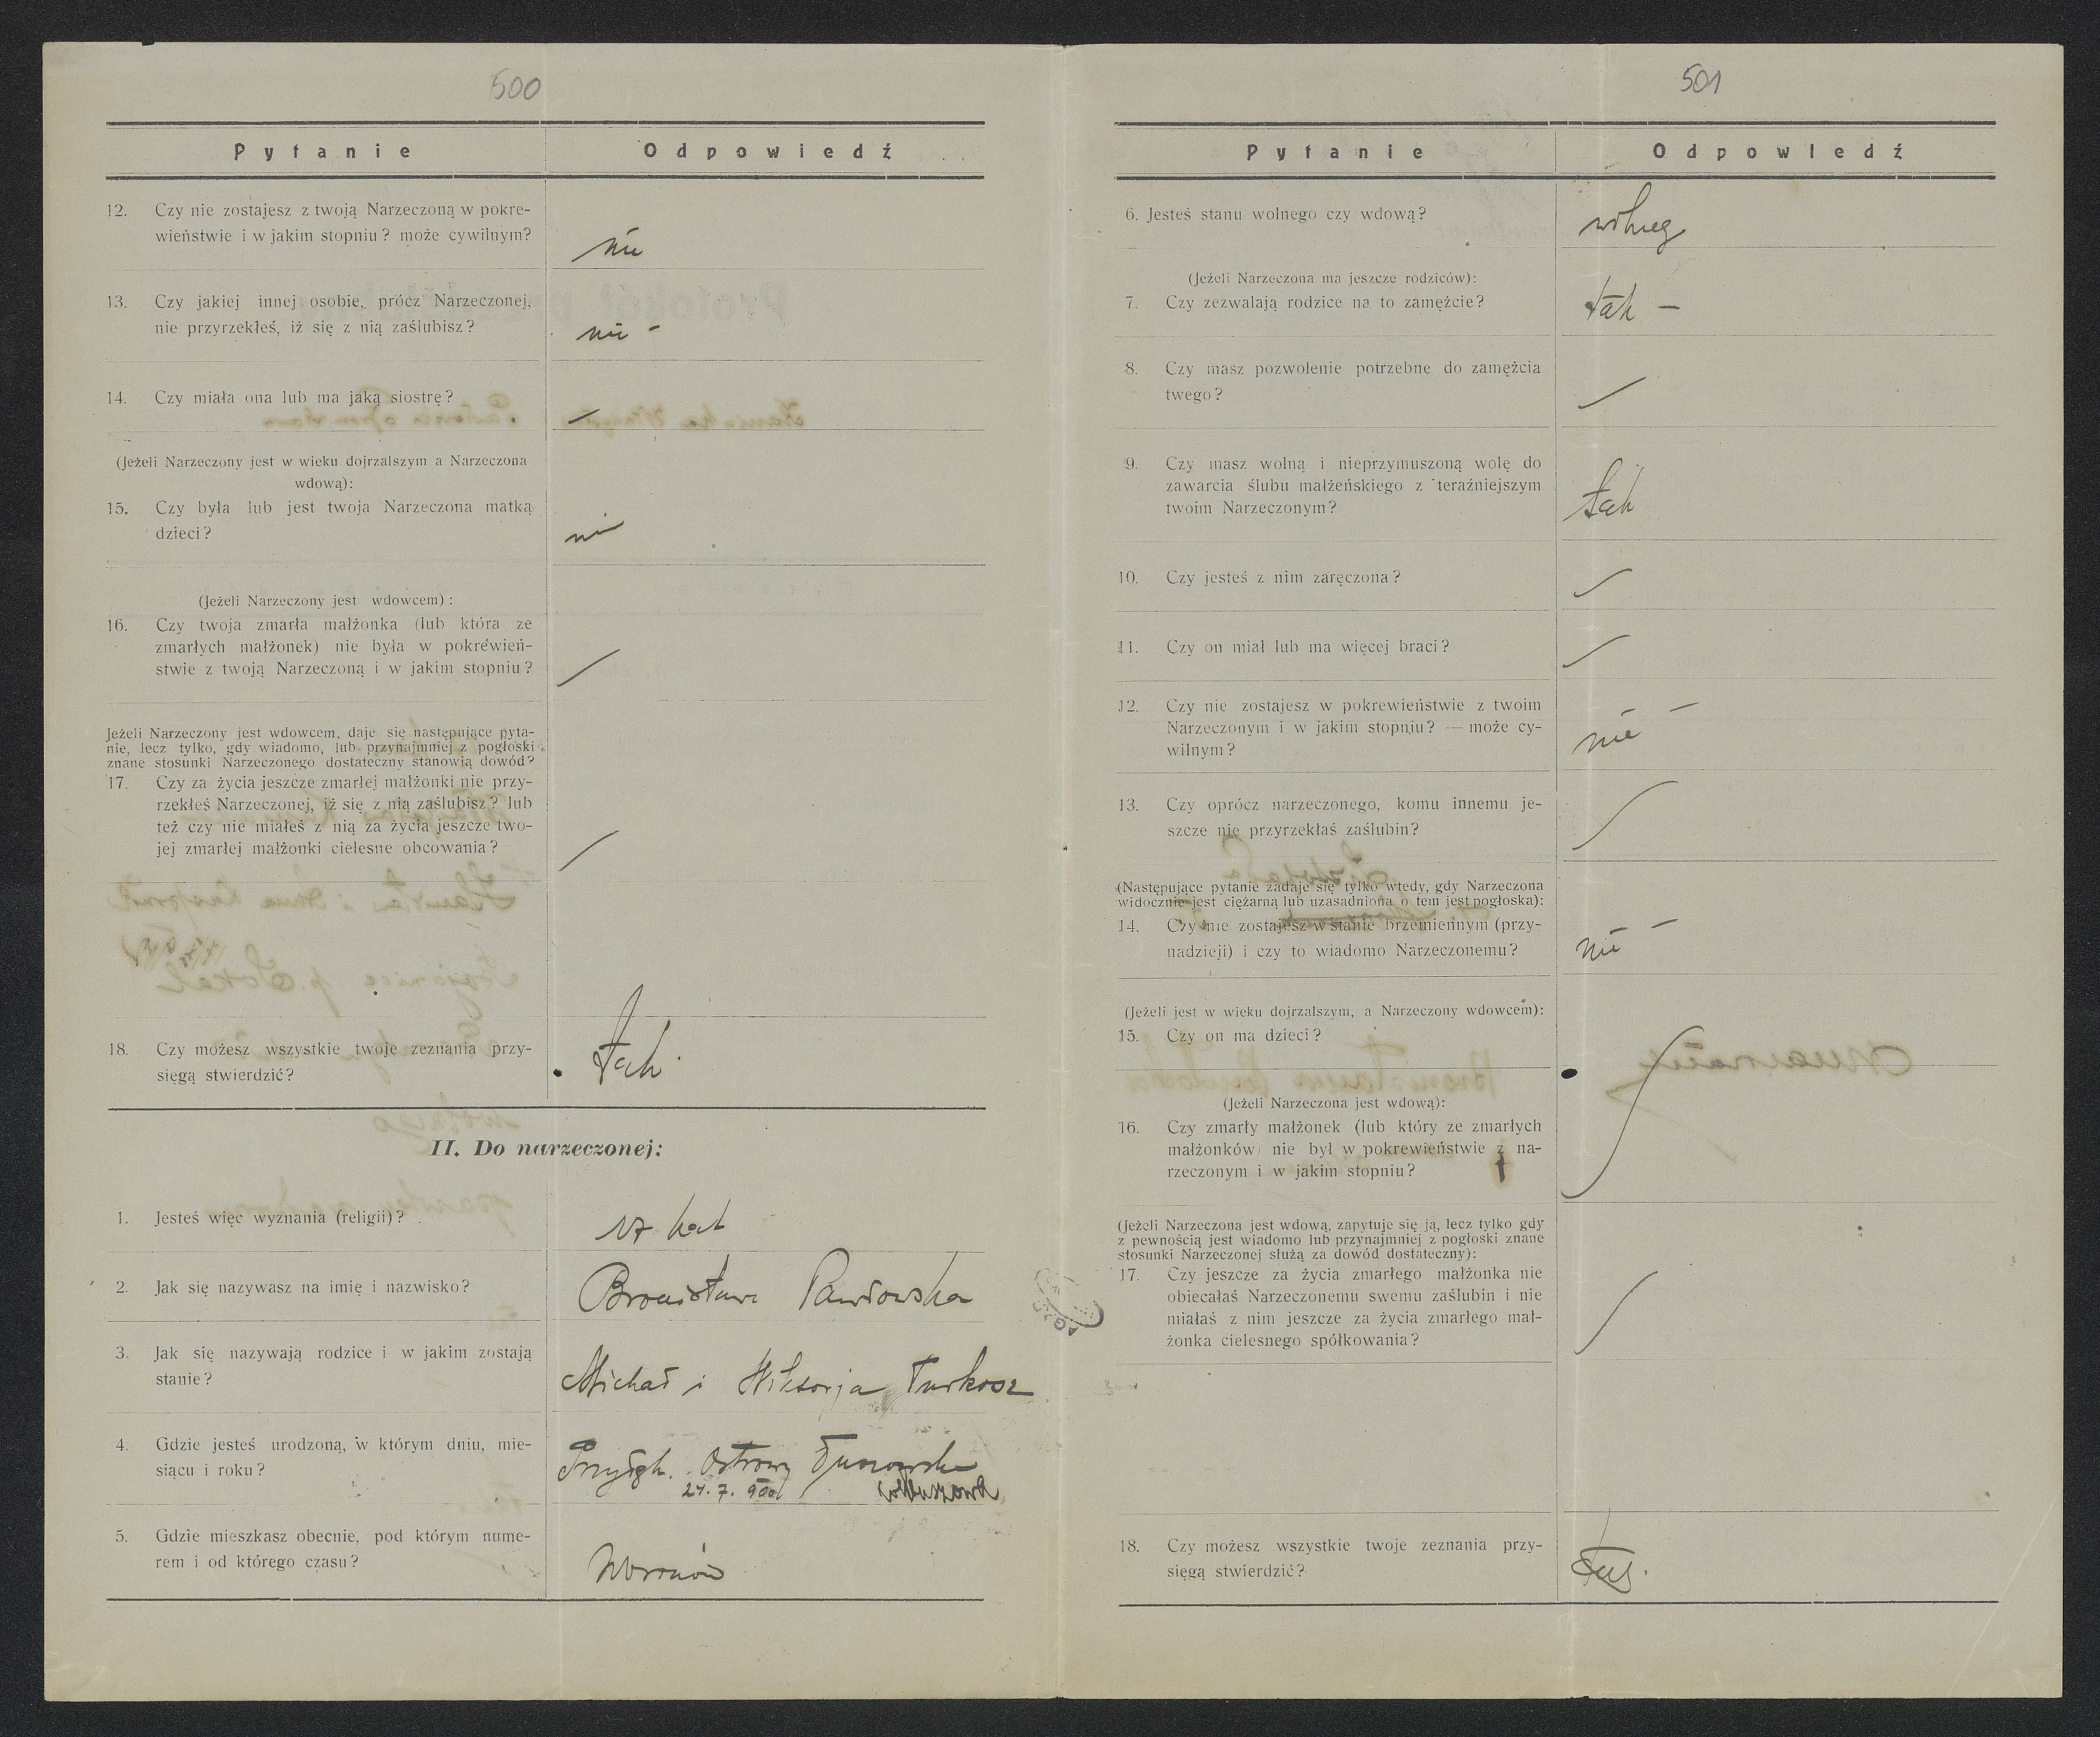 500
Pytanie Odpowiedź
12. Czy nie zostajesz z twoją Narzeczoną w pokre-
wieństwie i w jakim stopniu? może cywilnym?
nie
13. Czy jakiej innej osobie, prócz Narzeczonej,
nie przyrzekłeś, iż się z nią zaślubisz?
nie –
14. Czy miała ona lub ma jaką siostrę?
(Jeżeli Narzeczony jest w wieku dojrzalszym a Narzeczona
wdową):
15. Czy była lub jest twoja Narzeczona matką
dzieci?
nie
(Jeżeli Narzeczony jest wdowcem):
16. Czy twoja zmarła małżonka (lub która ze
zmarłych małżonek) nie była w pokrewień-
stwie z twoją Narzeczoną i w jakim stopniu?
Jeżeli Narzeczony jest wdowcem, daje się następujące pyta-
nie, lecz tylko, gdy wiadomo, lub przynajmniej z pogłoski
znane stosunki Narzeczonego dostateczny stanowią dowód?
17. Czy za życia jeszcze zmarłej małżonki nie przy-
rzekłeś Narzeczonej, iż się z nią zaślubisz? lub
też czy nie miałeś z nią za życia jeszcze two-
jej zmarłej małżonki cielesne obcowania?
18. Czy możesz wszystkie twoje zeznania przy-
sięgą stwierdzić?
tak
II. Do narzeczonej:
1. Jesteś więc wyznania (religii)?
rz kat
2. Jak się nazywasz na imię i nazwisko?
Bronisława Pawłowska
3. Jak się nazywają rodzice i w jakim zostają
stanie?
Michał i Wiktorja Turkosz
4. Gdzie jesteś urodzoną, w którym dniu, mie-
siącu i roku?
Ostrowy
5. Gdzie mieszkasz obecnie, pod którym nume-
rem i od którego czasu?
Woronów
501
Pytanie Odpowiedź
6. Jesteś stanu wolnego czy wdową?
wolneg
(Jeżeli Narzeczona ma jeszcze rodziców):
7. Czy zezwalają rodzice na to zamężcie?
tak –
8. Czy masz pozwolenie potrzebne do zamężcia
twego?
9. Czy masz wolną i nieprzymuszoną wolę do
zawarcia ślubu małżeńskiego z teraźniejszym
twoim Narzeczonym?
tak
10. Czy jesteś z nim zaręczona?
11. Czy on miał lub ma więcej braci?
12. Czy nie zostajesz w pokrewieństwie z twoim
Narzeczonym i w jakim stopniu? — może cy-
wilnym?
nie –
13. Czy oprócz narzeczonego, komu innemu je-
szcze nie przyrzekłaś zaślubin?
(Następujące pytanie zadaje się tylko wtedy, gdy Narzeczona
widocznie jest ciężarną lub uzasadniona o tem jest pogłoska):
14. Czy nie zostajesz w stanie brzemiennym (przy-
nadzieji) i czy to wiadomo Narzeczonemu?
nie –
(Jeżeli jest w wieku dojrzalszym, a Narzeczony wdowcem):
15. Czy on ma dzieci?
(Jeżeli Narzeczona jest wdową):
16. Czy zmarły małżonek (lub który ze zmarłych
małżonków) nie był w pokrewieństwie z na-
rzeczonym i w jakim stopniu?
(Jeżeli Narzeczona jest wdową, zapytuje się ją, lecz tylko gdy
z pewnością jest wiadomo lub przynajmniej z pogłoski znane
stosunki Narzeczonej służą za dowód dostateczny):
17. Czy jeszcze za życia zmarłego małżonka nie
obiecałaś Narzeczonemu swemu zaślubin i nie
miałaś z nim jeszcze za życia zmarłego mał-
żonka cielesnego spółkowania?
18. Czy możesz wszystkie twoje zeznania przy-
sięgą stwierdzić?